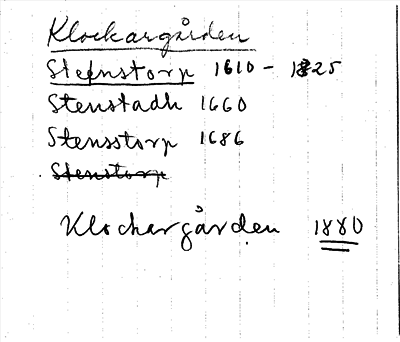 Klockargården
Stefnstorp 1610 - 1825
Stenstadh 1660
Stensstorp 1686
Stenstorp
Klockargården 1880